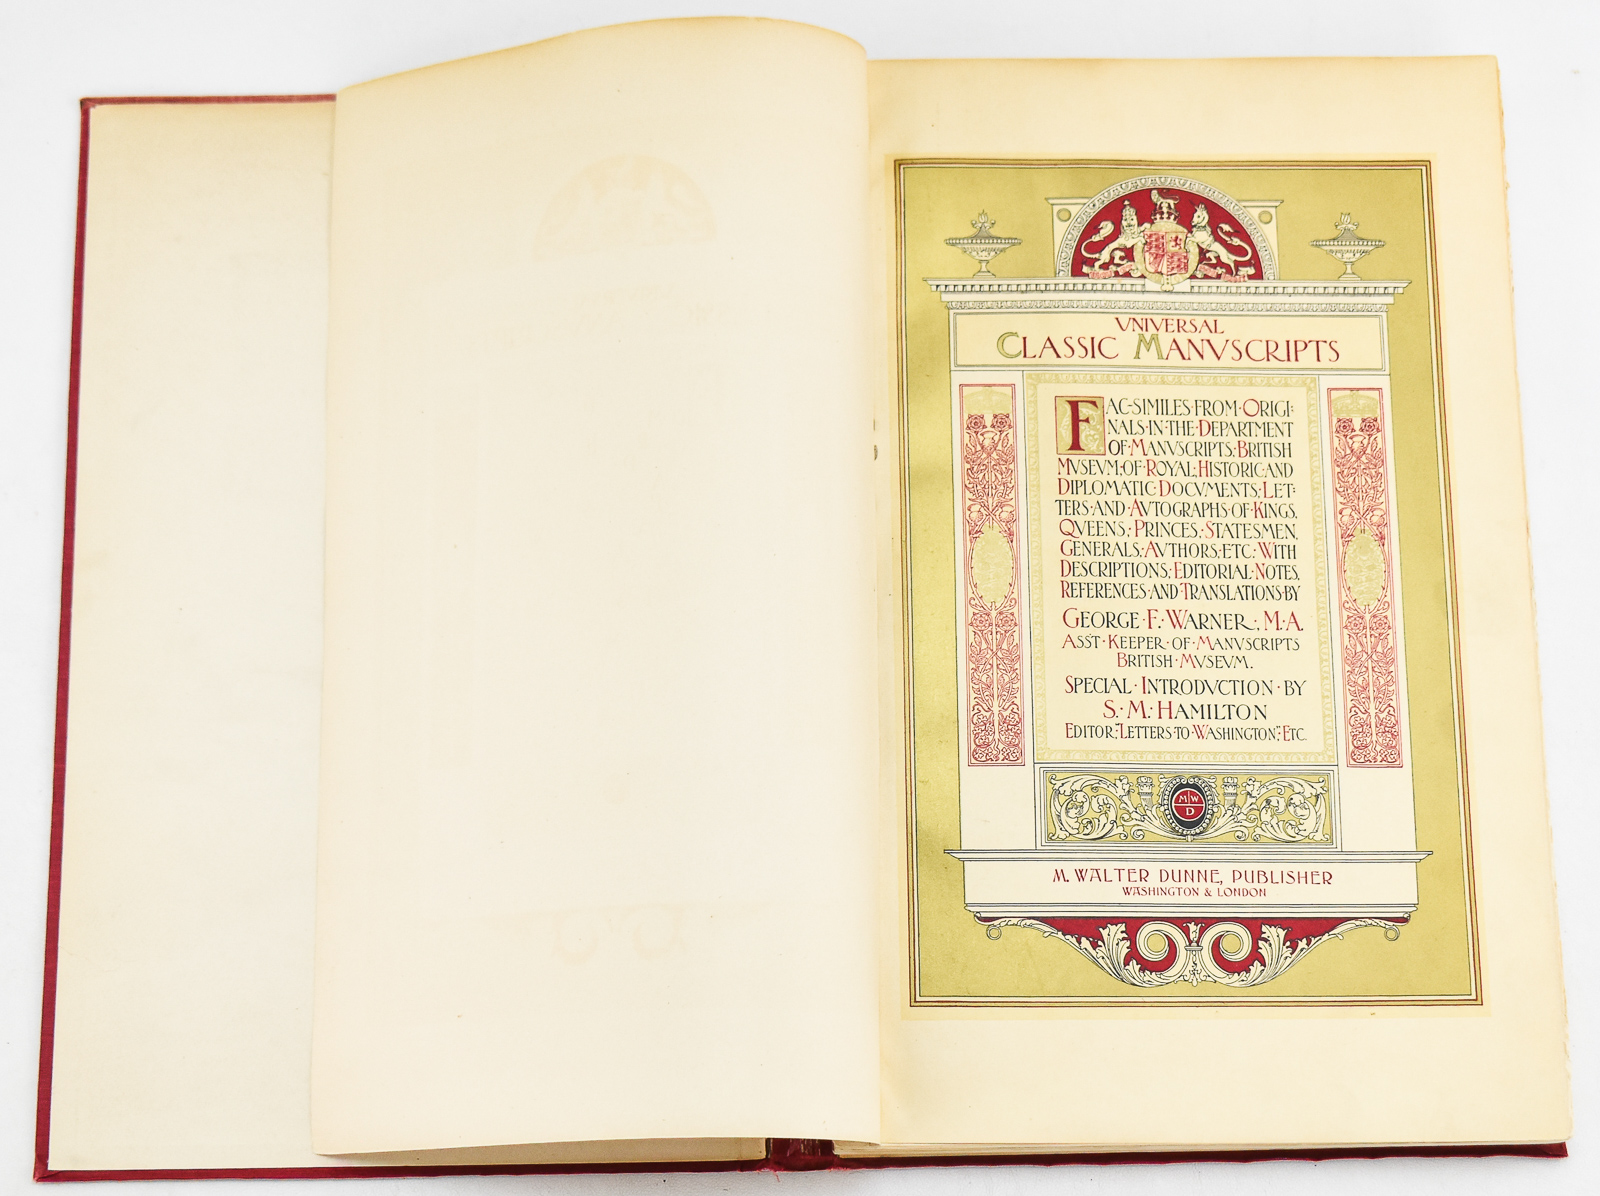 VNIVERSAL
CLASSIC MANVSCRIPTS
FAC-SIMILES·FROM·ORIGI-
NALS·IN·THE·DEPARTMENT
OF·MANVSCRIPTS,·BRITISH
MVSEVM;·OF·ROYAL,·HISTORIC·AND
DIPLOMATIC·DOCVMENTS,·LET-
TERS·AND·AVTOGRAPHS·OF·KINGS,
QVEENS,·PRINCES,·STATESMEN,
GENERALS,·AVTHORS,·ETC·WITH
DESCRIPTIONS,·EDITORIAL·NOTES,
REFERENCES·AND·TRANSLATIONS·BY
GEORGE·F·WARNER·, M·A.
ASST·KEEPER·OF·MANVSCRIPTS
BRITISH·MVSEVM.
SPECIAL·INTRODVCTION·BY
S·M·HAMILTON
EDITOR,·"LETTERS·TO·WASHINGTON",·ETC.
M W
D
M. WALTER DUNNE, PUBLISHER
WASHINGTON & LONDON